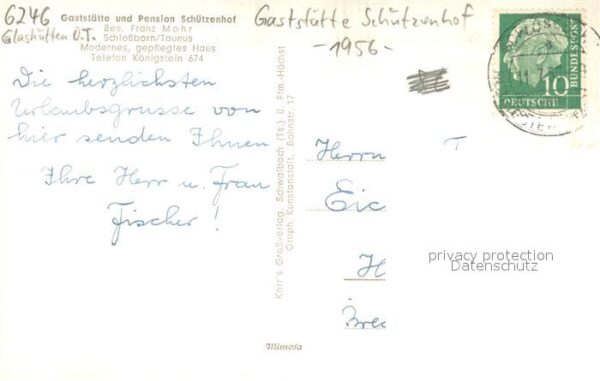 6246
Gaststätte und Pension Schützenhof
Glashütten O.T.
Bes. Franz Mohr
Schloßborn/Taunus
Modernes, gepflegtes Haus
Telefon Königstein 674
Gaststätte Schützenhof
-1956-
Die herzlichsten
Urlaubsgrüsse von
hier senden Ihnen
Ihre Herr u. Frau
Fischer!
Korr's Großverlag, Schwalbach (Ts.) u. Ffm.-Höchst
Graph. Kunstanstalt, Bahnstr. 17
Mimosa
10
DEUTSCHE
BUNDESPOST
Herrn T
Eic
H
privacy protection
Datenschutz